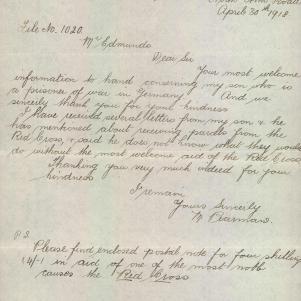 April 30th 1918
File No. 1020.
Mr Edmunds
Dear Sir
Your most welcome
information to hand concerning my son who is
a prisoner of war in Germany. And we
sincerly thank you for your kindness
I have received several letters from my son & he
has mentioned about receiving parcels from the
Red Cross, & said he does not know what they would
do without the most welcome aid of the Red Cross
Thanking you very much indeed for your
kindness
I remain
Yours Sincerly
M Pearman.
P.S.
Please find enclosed postal note for four shillings
(4/-) in aid of one of the most noth
causes the Red Cross